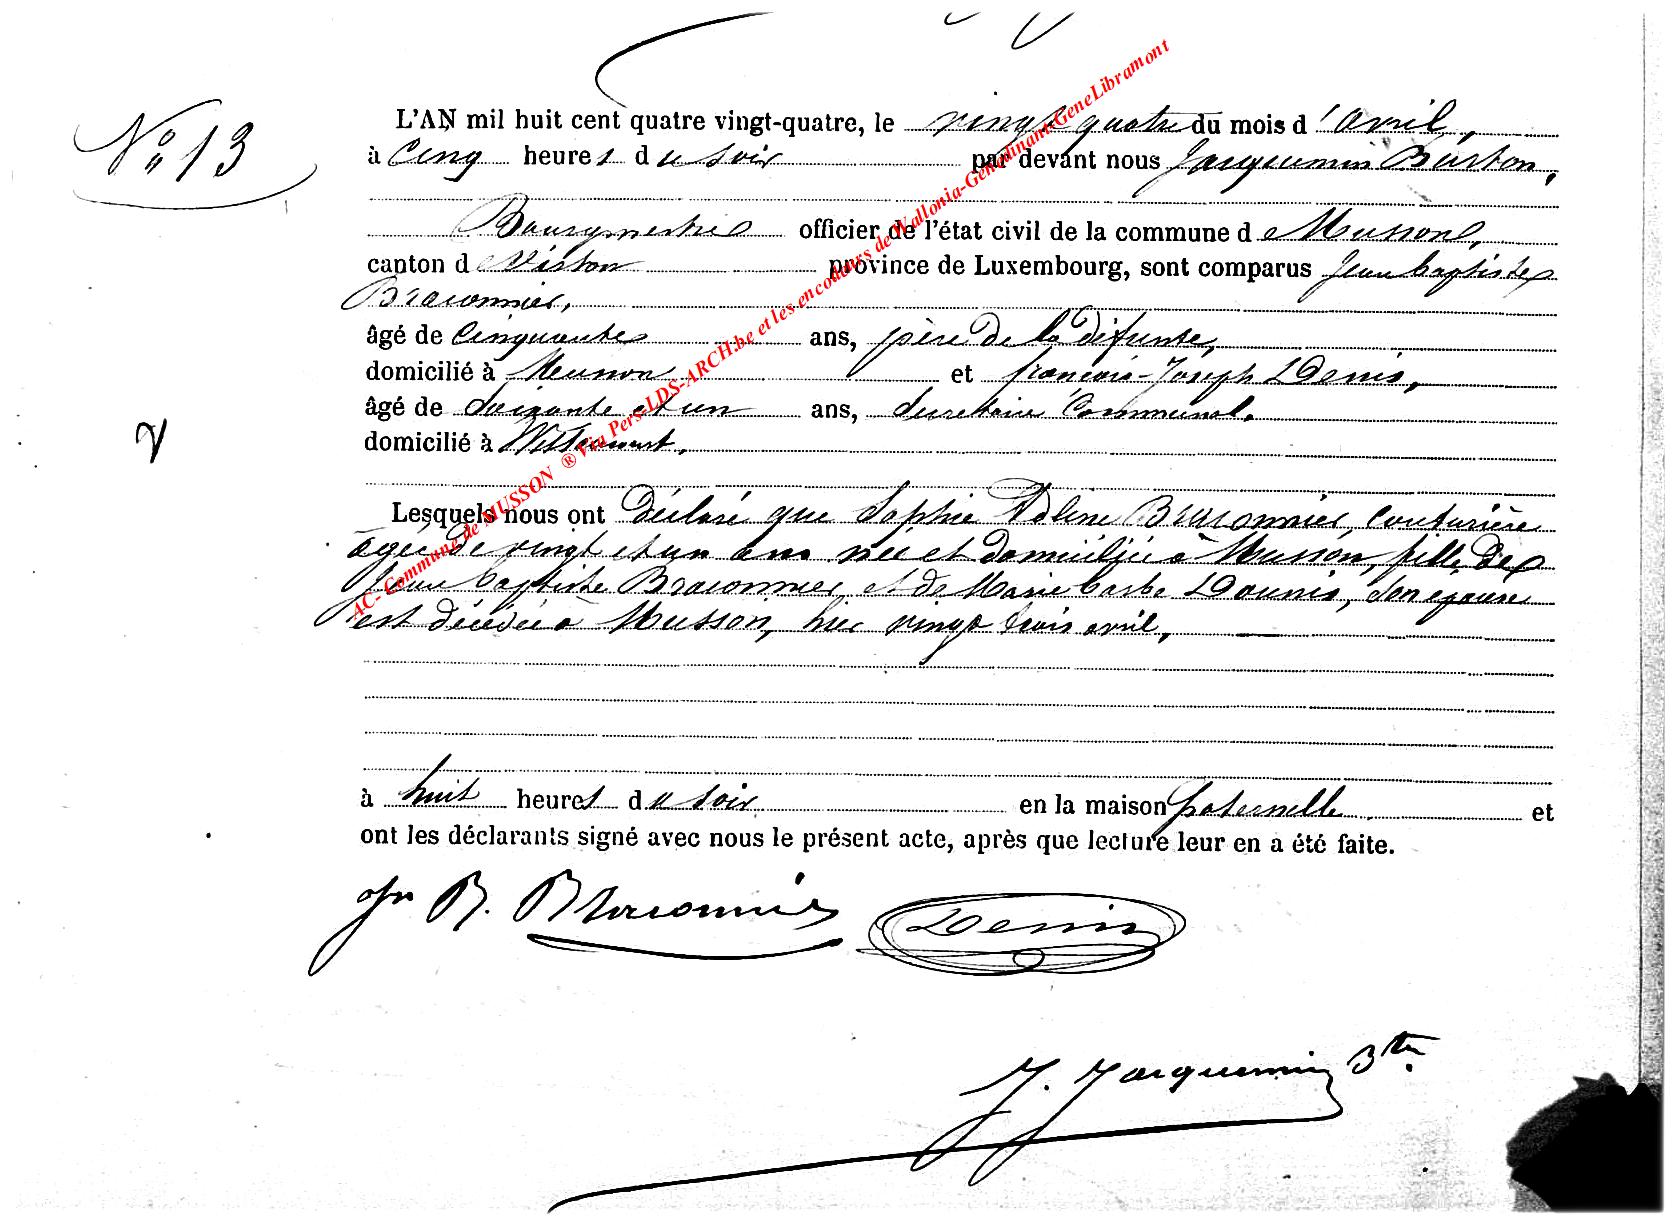 N° 13
L'AN mil huit cent quatre vingt-quatre, le vingt quatre du mois d'avril,
à cinq heures du soir par devant nous Jacquemin Burton,
Bourgmestre officier de l'état civil de la commune de Musson,
canton de Virton province de Luxembourg, sont comparus Jean baptiste
Braconnier,
âgé de cinquante ans, père de la défunte,
domicilié à Musson et françois-Joseph Denis,
âgé de soixante et un ans, secrétaire communal.
domicilié à
Lesquels nous ont déclaré que Sophie Adline Braconnier, couturière
âgée de vingt et un ans née et domiciliée à Musson, fille de
Jean baptiste Braconnier et de Marie barbe Dounis, son épouse
est décédée à Musson, hier vingt trois avril,
à huit heures du soir en la maison paternelle et
ont les déclarants signé avec nous le présent acte, après que lecture leur en a été faite.
Jn B. Braconnier Denis
J. Jacquemin Btn
AC- Commune de MUSSON ® Via Pers-LDS-ARCH.be et les encodeurs de Wallonia-Genedinant-GeneLibramont